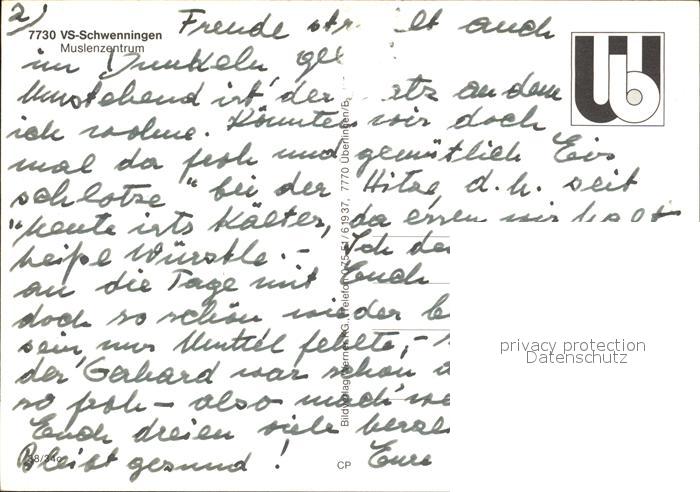 2)
7730 VS-Schwenningen
Muslenzentrum
Freude str lt auch
im Dunkeln ge
Umstehend ist der atz an dem
ich wohne. Könnten wir doch
mal da froh und gemütlich "Eis
schlotze" bei der Hitze, d.h. seit
heute ists kälter, da essen wir halt
heiße Würstle. - Ich de
an die Tage mit Euch
doch so schön wieder b
sein, nur Muttel fehlte, -
der Gerhard war schon
so froh - also mach
Euch dreien viele herzl
Bleibt gesund! Eure
38/34
CP
Bildverlag Bernes KG., Telefon 0 75 51/6 19 37, 7770 Überlingen/B
Üb
privacy protection
Datenschutz